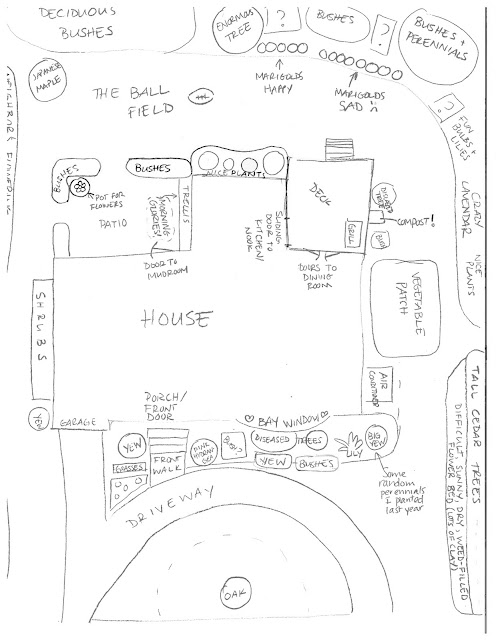 DECIDUOUS
BUSHES
ENORMOUS
TREE
?
BUSHES
?
BUSHES +
PERENNIALS
JAPANESE
MAPLE
THE BALL
FIELD
MARIGOLDS
HAPPY
MARIGOLDS
SAD
?
FUN
BULBS +
LILIES
CRAZY
LAVENDAR
NICE
PLANTS
BUSHES
POT FOR
FLOWERS
BUSHES
NICE PLANTS
DECK
DISEASED
TREE
COMPOST!
GRILL
PATIO
MORNING
GLORIES!
TRELLIS
SLIDING
DOOR TO
KITCHEN/
NOOK
DOOR TO
MUDROOM
DOORS TO
DINING
ROOM
VEGETABLE
PATCH
SHRUBS
HOUSE
AIR
CONDITIONER
TALL CEDAR TREES
DIFFICULT, SUNNY, DRY, WEED-FILLED
FLOWER BED (LOTS OF CLAY)
PORCH/
FRONT
DOOR
BAY WINDOW
YEW
GARAGE
YEW
GRASSES
FRONT
WALK
BUSH
DISEASED TREES
YEW BUSHES
LILY
BIG
YEW
Some
random
perennials
I planted
last year
DRIVEWAY
OAK